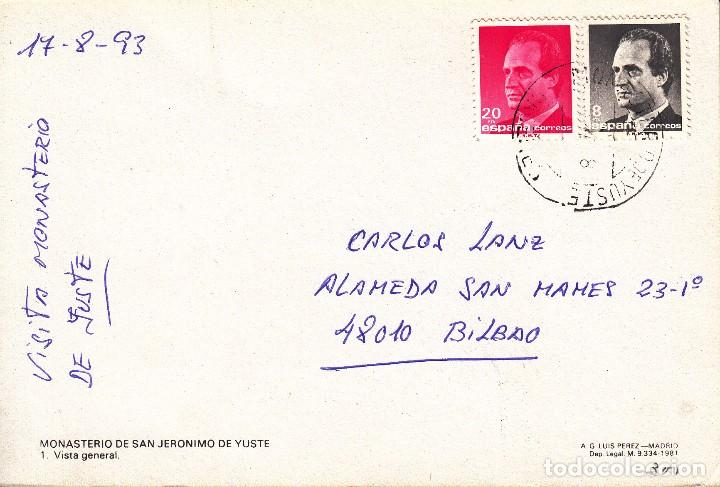 17-8-93
20
PTA
españa correos
8
españa correos
DE YUSTE
VISITA MONASTERIO
DE YUSTE
CARLOS LANZ
ALAMEDA SAN MAMES 23-1º
48010 BILBAO
MONASTERIO DE SAN JERONIMO DE YUSTE
1. Vista general.
A. G. LUIS PEREZ—MADRID
Dep. Legal. M. 9.334-1981
todocoleccion.net